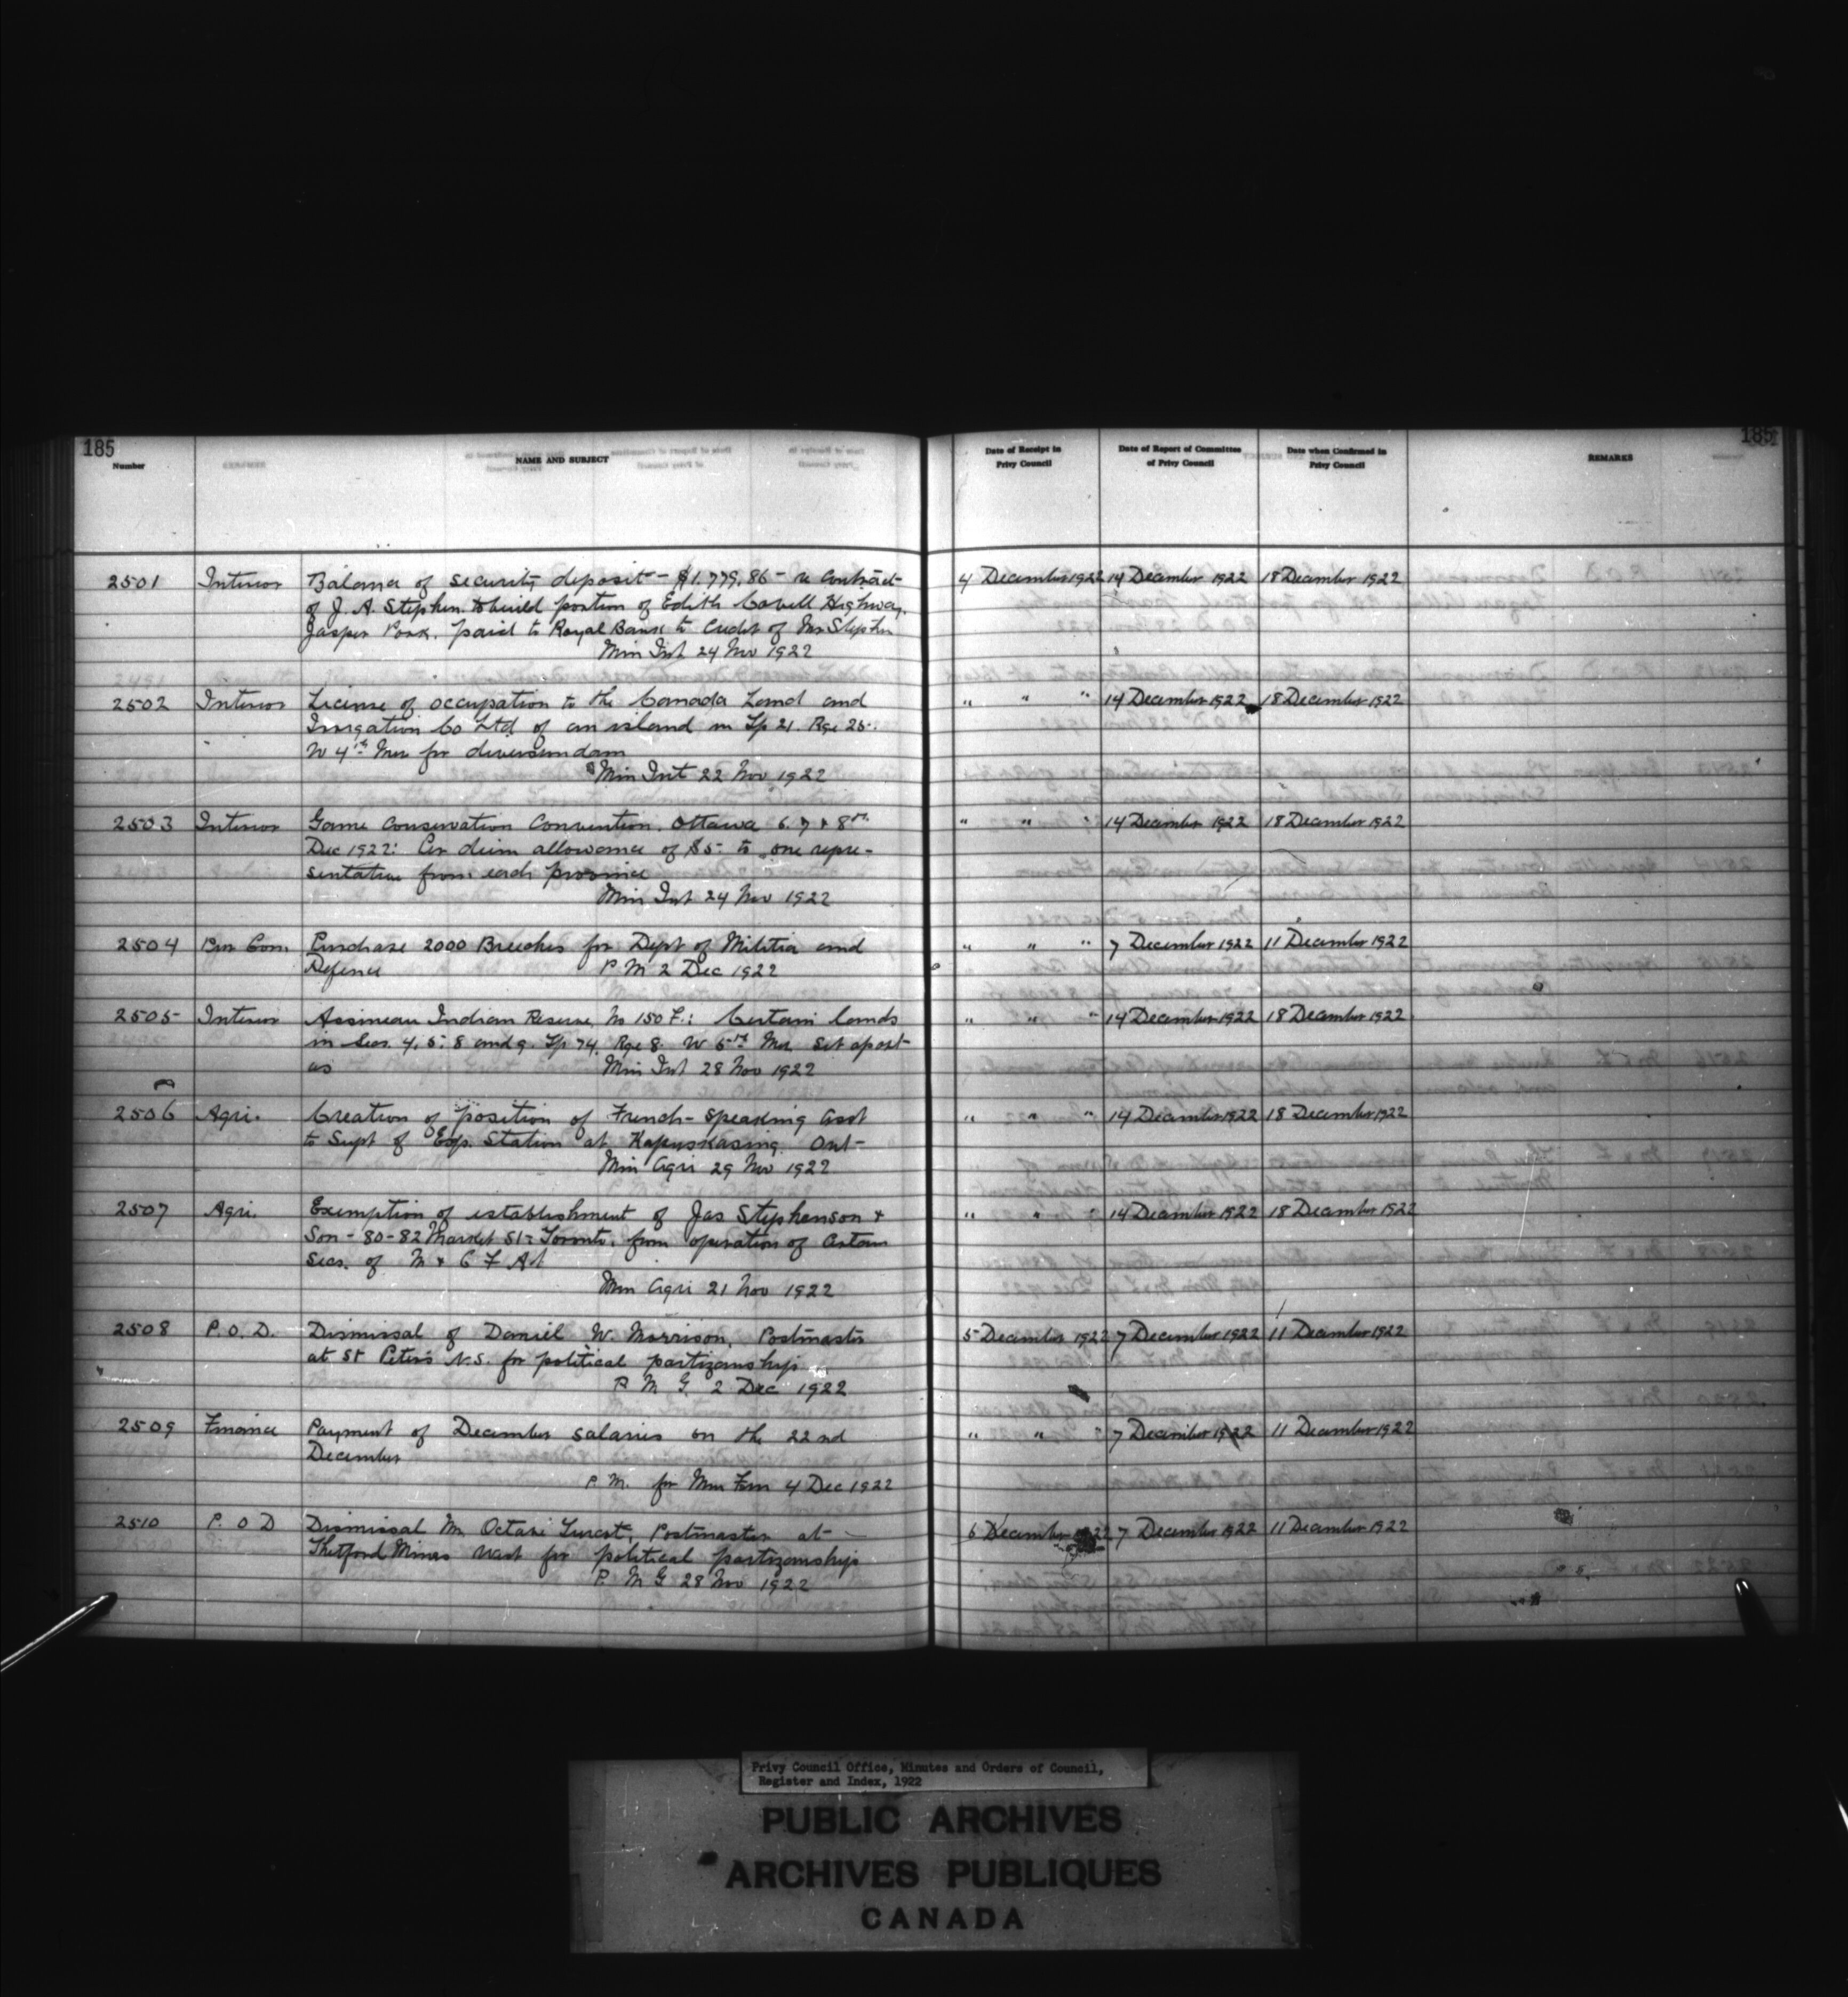 185
185
Number
NAME AND SUBJECT
Date of Receipt in Privy Council
Date of Report of Committee of Privy Council
Date when Confirmed in Privy Council
REMARKS
2501 Interior Balance of security deposit - $1,779.86 - re contract 4 December 1922 14 December 1922 18 December 1922
of J. A. Stephen to build portion of Edith Cavell Highway,
Jasper Park, paid to Royal Bank to Credit of Mr Stephen
Min Int 24 Nov 1922
2502 Interior License of occupation to the Canada Land and " " " 14 December 1922 18 December 1922
Irrigation Co Ltd of an island in Tp 21. Rge 25.
W 4th Mer for diversion dam
Min Int 22 Nov 1922
2503 Interior Game Conservation Convention, Ottawa 6. 7 & 8th " " " 14 December 1922 18 December 1922
Dec 1922: Per diem allowance of $5 - to one repre-
sentative from each province
Min Int 24 Nov 1922
2504 Pur Com. Purchase 2000 Breeches for Dept of Militia and " " " 7 December 1922 11 December 1922
Defence P. M 2 Dec 1922
2505 Interior Assineau Indian Reserve, No 150 F.: Certain lands " " " 14 December 1922 18 December 1922
in Secs. 4, 5, 8 and 9. Tp 74. Rge 8. W 5th Mer. Set apart
as Min Int 28 Nov 1922
2506 Agri. Creation of position of French-speaking Asst " " " 14 December 1922 18 December 1922
to Supt of Exp. Station at Kapuskasing. Ont-
Min Agri 29 Nov 1922
2507 Agri. Exemption of establishment of Jas Stephenson & " " " 14 December 1922 18 December 1922
Son - 80-82 Market St - Toronto, from operation of Certain
Secs. of M & C F Act
Min Agri 21 Nov 1922
2508 P. O. D. Dismissal of Daniel W. Morrison, Postmaster 5 December 1922 7 December 1922 11 December 1922
at St Peter's N.S. for political partizanship
P. M G. 2 Dec 1922
2509 Finance Payment of December salaries on the 22nd " " " 7 December 1922 11 December 1922
December
P. M. for Min Fin 4 Dec 1922
2510 P. O D Dismissal Mr Octave Postmaster at- 6 December 1922 7 December 1922 11 December 1922
Thetford Mines West for political partizanship
P. M G 28 Nov 1922
Privy Council Office, Minutes and Orders of Council,
Register and Index, 1922
PUBLIC ARCHIVES
ARCHIVES PUBLIQUES
CANADA